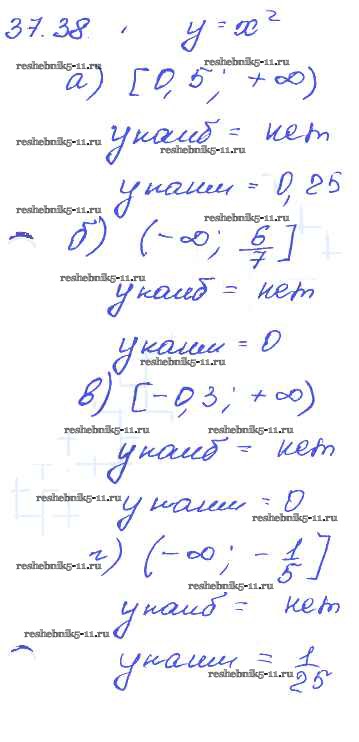 37.38. y = x²
reshebnik5-11.ru reshebnik5-11.ru
а) [0,5; +∞)
y наиб = нет
reshebnik5-11.ru reshebnik5-11.ru
y наим = 0,25
reshebnik5-11.ru reshebnik5-11.ru
б) (-∞; 6/7]
reshebnik5-11.ru
y наиб = нет
y наим = 0
reshebnik5-11.ru
в) [-0,3; +∞)
reshebnik5-11.ru reshebnik5-11.ru
y наиб = нет
reshebnik5-11.ru
y наим = 0
reshebnik5-11.ru
г) (-∞; -1/5]
reshebnik5-11.ru
reshebnik5-11.ru
y наиб = нет
reshebnik5-11.ru
y наим = 1/25
reshebnik5-11.ru